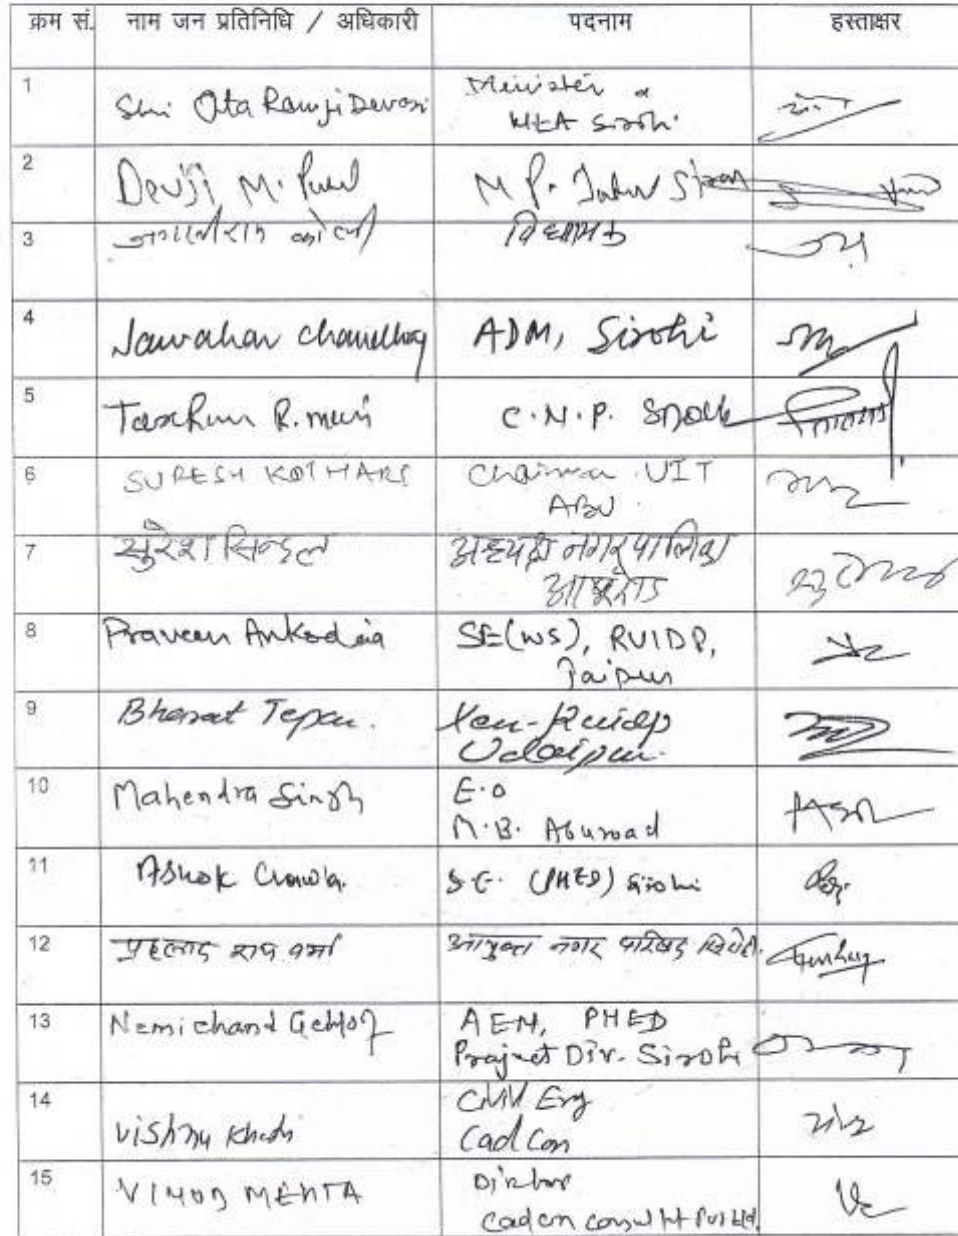 क्रम सं. नाम जन प्रतिनिधि / अधिकारी पदनाम हस्ताक्षर
1 Shri Ota Ramji Devasi Minister &
MLA Sirohi
2 Devji M. Patel M P.
3 कोली विधायक
4 Jawahar Choudhary ADM, Sirohi
5 C.M.P.
6 SURESH KOTHARI Chairman UIT
ABU
7 सुरेश सिन्दल अध्यक्ष नगर पालिका
आबूरोड
8 Praveen Ankodia SE(WS), RUIDP,
Jaipur
9 Bharat Tepan. Xen-Ruidp
Udaipur.
10 Mahendra Singh E.O
M.B. Aburoad
11 Ashok Chawla. S.E. (PHED) Sirohi
12 प्रहलाद राय वर्मा आयुक्त नगर परिषद सिरोही.
13 Nemichand AEN, PHED
Project Div. Sirohi
14 Vishnu Civil Eng
CadCon
15 VINOD MEHTA Director
Cadcon consultt Pvt Ltd.